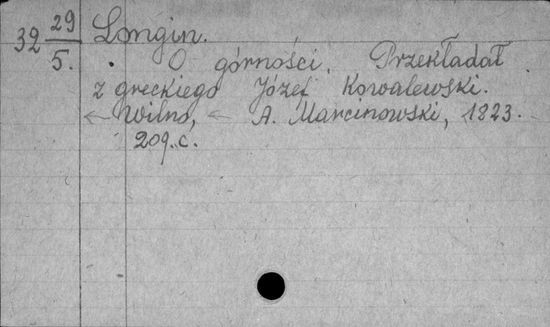 32 29/5. Longin.
O górności. Przekładał
z greckiego Józef Kowalewski.
← Wilno, ← A. Marcinowski, 1823.
209. c.